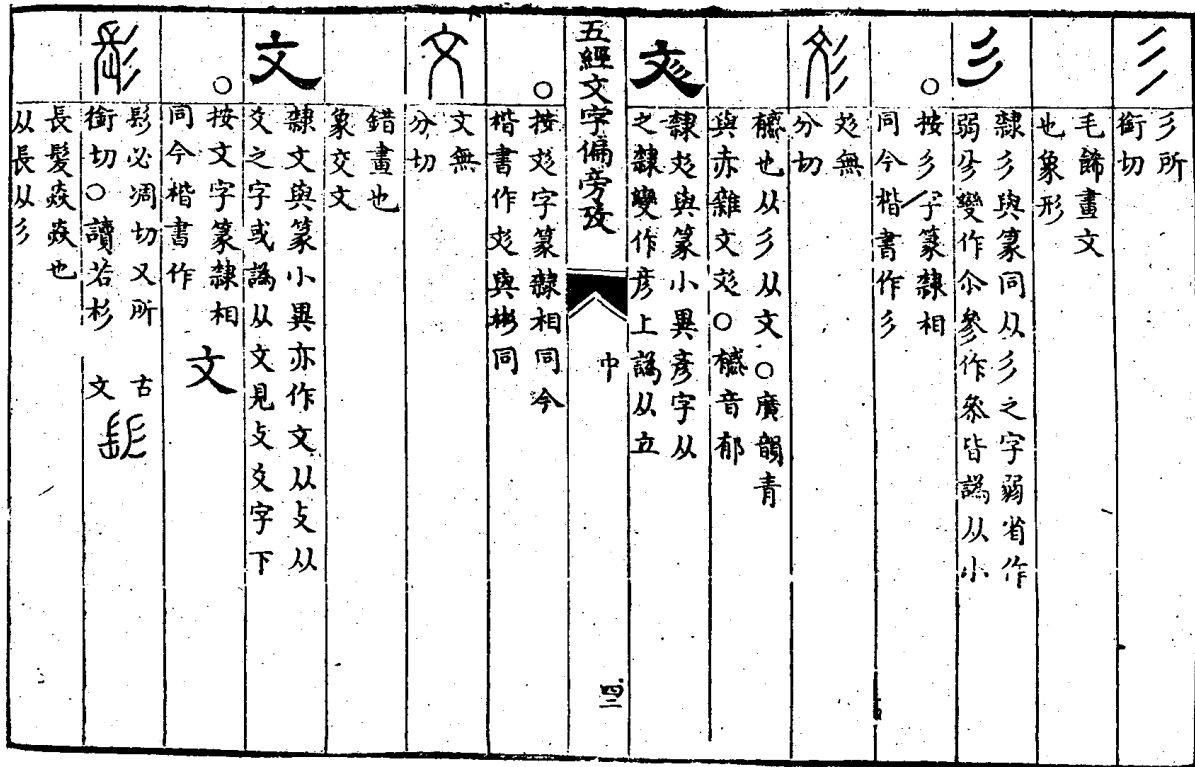 彡
彡所
銜切
毛飾畫文
也象形
彡
隸彡與篆同从彡之字弱省作
弱㐱變作尒參作叅皆譌从小
○按彡字篆隸相
同今楷書作彡
彣
彣無
分切
𢒰也从彡从文○廣韻青
與赤雜文彣○𢒰音郁
彣
隸彣與篆小異彥字从
之隸變作彦上譌从立
五經文字偏旁攷
中
四二
○按彣字篆隸相同今
楷書作彣與彬同
文
文無
分切
錯畫也
象交文
文
隸文與篆小異亦作文从攴从
爻之字或譌从文見攴爻字下
○按文字篆隸相
同今楷書作
文
髟
髟必凋切又所
銜切○讀若杉
古
文
長髮猋猋也
从長从彡